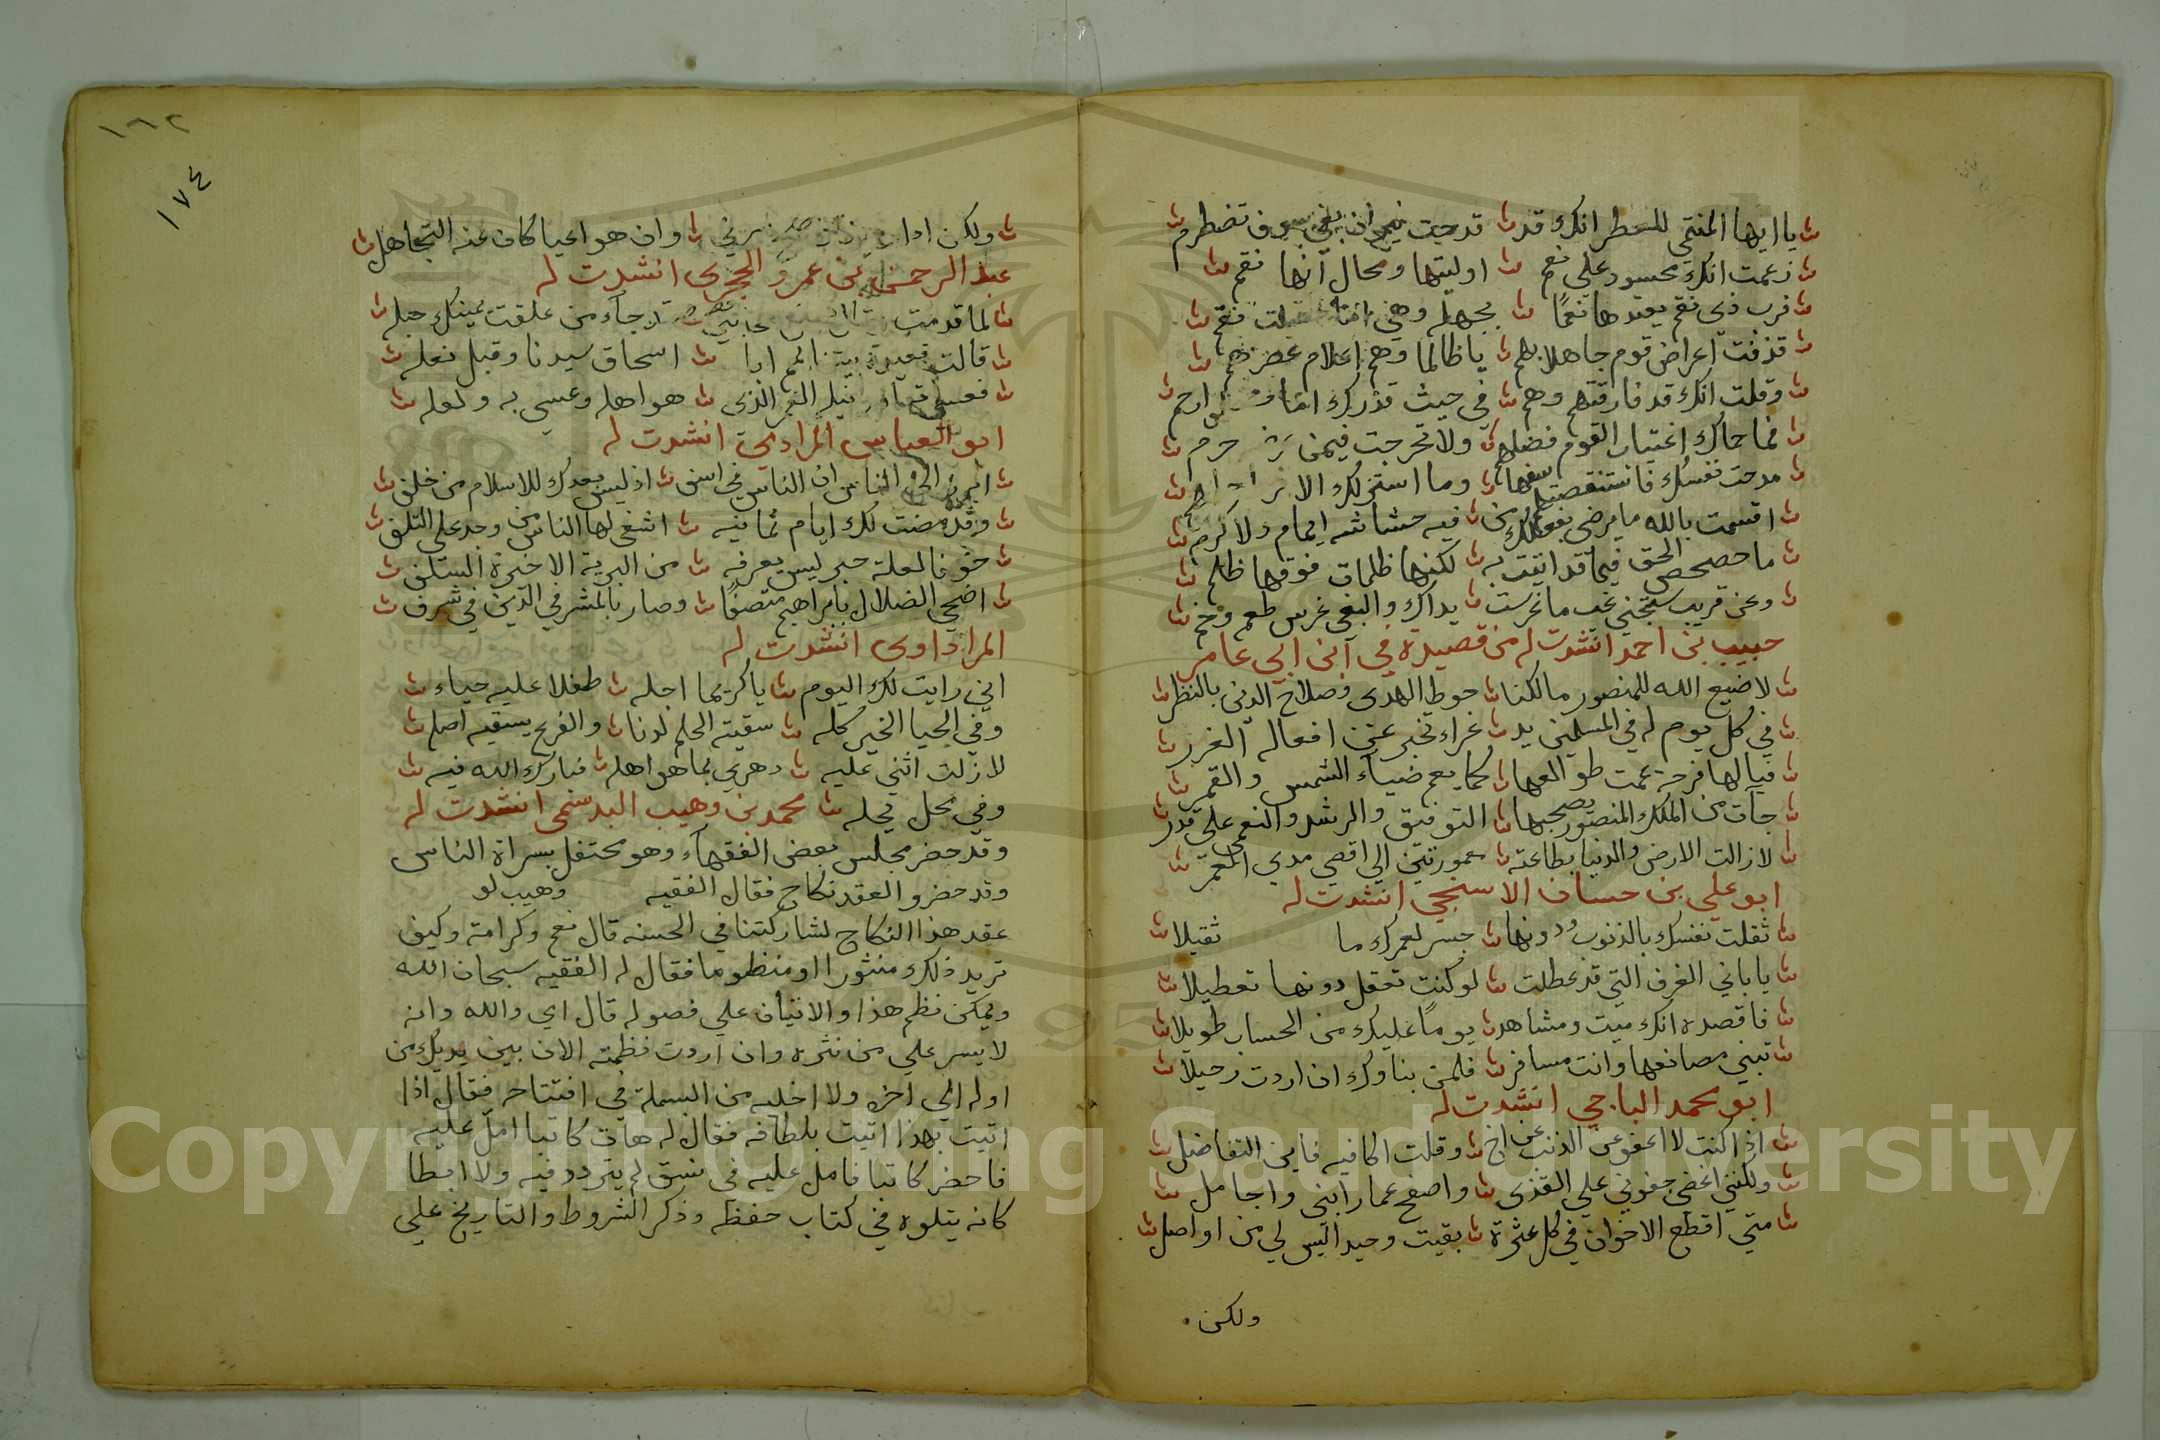 يا ايها المنتمي للسطر انك قد قدحت نيران بغي سوف تضطرم
زعمت انك محسود علي نعم اوليتها ومحال انها نقم
فرب ذي نقم يعتدها نعمًا بجهله وهي
قذفت اعراض قوم جاهلا بهم يا ظالما وهم اعلام عصرهم
وقلت انك قد فارقتهم وهم في حيث قدرك
فما حماك اغتياب القوم فضلهم ولا تحرجت فيمن
مدحت نفسك فاستنقصتها سفها وما استزلك الا
اقسمت بالله ما يرضي بفعلك من فيه حشاشه ايمام ولا كرم
ما حصحص الحق فيما قد اتيت به لكنها ظلمات فوقها ظلم
وعن قريب ستجني غب ما غرست يداك والبغي غرس طعم وخم
حبيب بن احمد انشدت له من قصيدة في آبن ابي عامر
لا ضيع الله للمنصور مالكنا حوط الهدي وصلاح الدني بالنظر
في كل يوم له في المسلمين يد غراء تخبر عن افعاله الغرر
فيا لها فرحة عمت طوالعها كما يعم ضياء الشمس والقمر
جآت من الملك المنصور يصحبها التوفيق والرشد والنعمي علي قدر
لا زالت الارض والدنيا بطاعته معمورتين الي اقصي مدي العمر
ابو علي بن حسان الاسنجي انشدت له
ثقلت نفسك بالذنوب ودونها جسر لعمرك ما ثقيلا
يا باني الغرف التي قد عطلت لو كنت تعقل دونها تعطيلا
فاقصد انك ميت ومشاهد يومًا عليك من الحساب طويلا
تبني مصانعها وانت مسافر فلمن بناوك ان اردت رحيلا
ابو محمد الباجي انشدت له
اذا كنت لا اعفو عن الذنب عن اخ وقلت اكافيه فاين التفاضل
ولكنني اغضي جفوني علي القذي واصفح عما رابني واجامل
متي اقطع الاخوان في كل عثرة بقيت وحيدا ليس لي من اواصل
ولكن
١٨٢
١٧٤
ولكن وان هو اعيا كان عنه التجاهل
عبد الرحمن بن عمرو الحجري انشدت له
لما قدمت جآء من علقت يمينك حبله
قالت اسحاق سيدنا وقبل نعله
فعسي النغر الذي هو اهله وعسي به ولعله
ابو العباس المرادي انشدت له
الي الناس ان الناس في اسف اذ ليس بعدك للاسلام من خلف
وقد مضت لك ايام ثمانيه اشفي لها الناس من وجد علي التلف
خوفا لعلة حبر ليس يعرفه من البرية الا خيرة السلف
اضحي الضلال بابراهيم متصفًا وصار بالمشرفي الدين في شرف
المراداوي انشدت له
اني رايت لك اليوم يا كريما اجله طفلا عليه حياء
وفي الحيا الخير كله سقيته الحلم لدنا والفرع يسقيه اصله
لا زلت اثني عليه دهري بما هو اهله فبارك الله فيه
وفي محل يحله محمد بن وهيب البدسنمي انشدت له
وقد حضر مجلس بعض الفقهآء وهو محتفل بسراة الناس
وقد حضروا لعقد نكاح فقال الفقيه وهيب لو
عقد هذا النكاح لشاركتنا في الحسنه قال نعم وكرامة وكيف
تريد ذلك منثورا او منظوما فقال له الفقيه سبحان الله
ويمكن نظم هذا والاتيان علي فصوله قال اي والله وانه
لايسر علي من نثره وان اردت نظمته الان بين يديك من
اوله الي اخره ولا اخليه من البسملة في افتتاحه فقال اذا
اتيت بهذا اتيت بلطافه فقال له هات كاتبا امل عليه
فاحضر كاتبا فامل عليه في نسق لم يتردد فيه ولا ابطا
كانه يتلوه في كتاب حفظه وذكر الشروط والتاريخ علي
Copyright © King Saud University